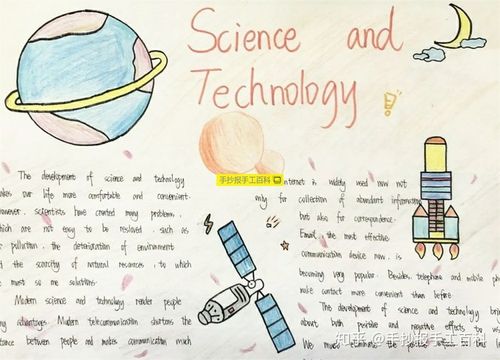 Science and
Technology
手抄报手工百科
The development of science and technology
makes our life more comfortable and convenient.
However, scientists have created many problems,
which are not easy to be resloved, such as
pollution, the deterioration of environment
the scarcity of natural resources, to which
must so me solutions.
Modern science and technology render people
many advantages. Modern telecommunication shortens the
distance between people and makes communication much
internet is widely used now not
only for collection of abundant information
but also for correspondence.
Email, the most effective
communication device now, is
becoming very popular. Besides, telephone and mobile
make contact more convenient than before.
The development of science and technology
about both positive and negative effects to
We must eliminate the
知乎 @手抄报手工百科